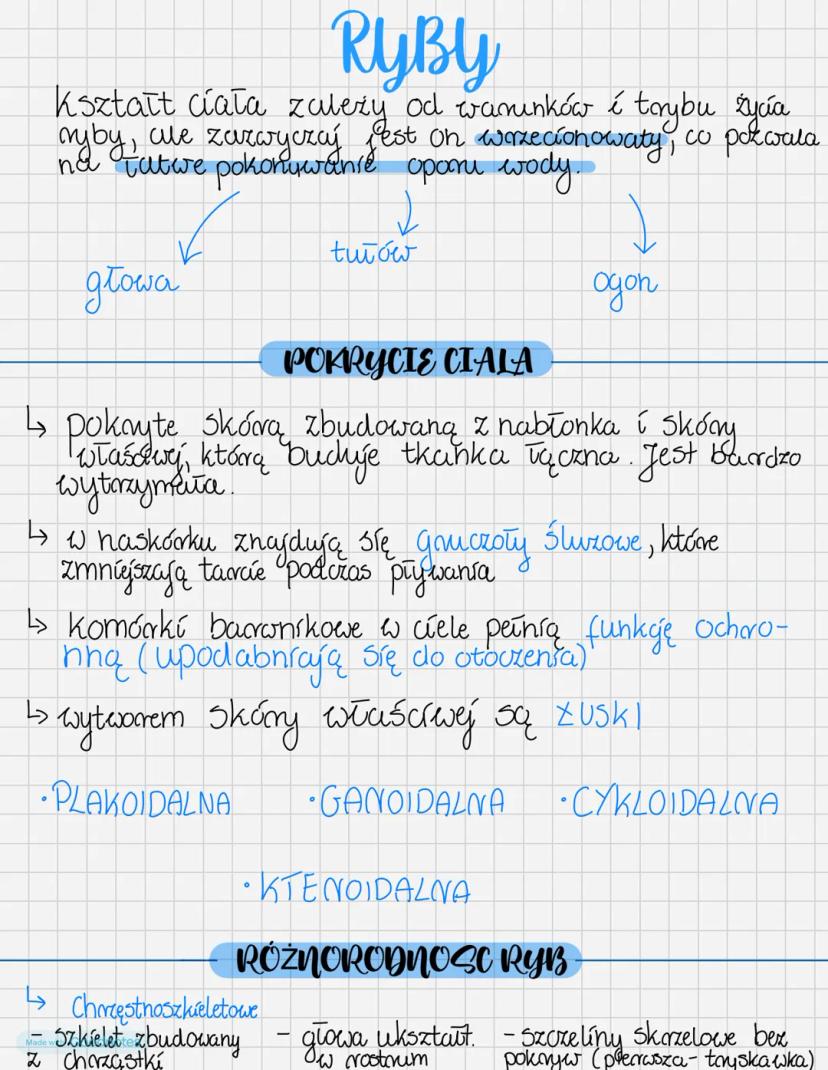 RYBY
Kształt ciała zależy od warunków i trybu życia
ryby, ale zazwyczaj jest on wrzecionowaty, co pozwala
na łatwe pokonywanie oporu wody.
głowa tułów ogon
POKRYCIE CIALA
↳ pokryte skórą zbudowaną z nabłonka i skóry
właściwej, którą buduje tkanka łączna. Jest bardzo
wytrzymała.
↳ w naskórku znajdują się gruczoły śluzowe, które
zmniejszają tarcie podczas pływania
↳ komórki barwnikowe w ciele pełnią funkcję ochro-
nną (upodabniają się do otoczenia)
↳ wytworem skóry właściwej są ŁUSKI
•PLAKOIDALNA •GANOIDALNA •CYKLOIDALNA
•KTENOIDALNA
RÓŻNORODNOSC RYB
↳ Chrzęstnoszkieletowe
- szkielet zbudowany - głowa ukształt. - szczeliny skrzelowe bez
z chrząstki w rostrum pokryw (pierwsza - tryskawka)
Made w